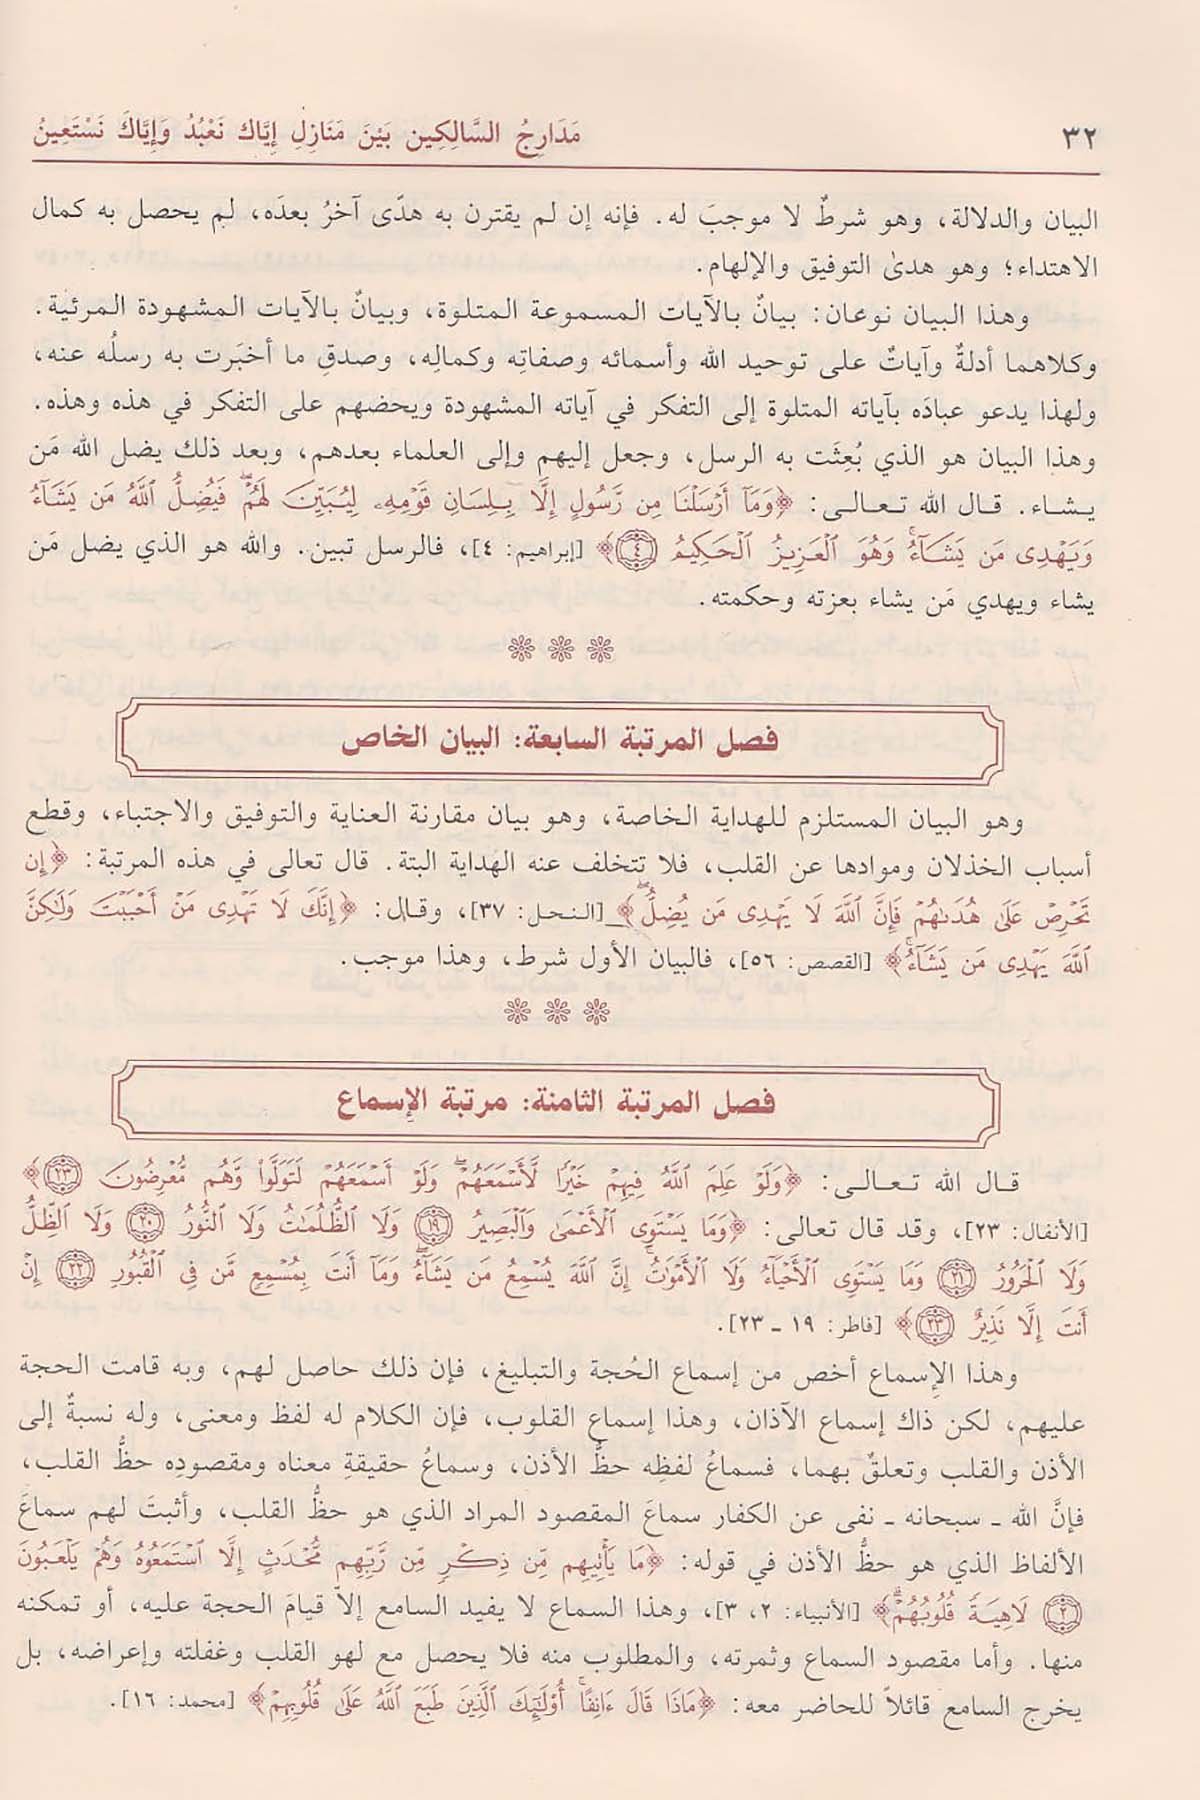 ٣٢
مَدَارِجُ السَّالِكِين بَيْنَ مَنَازِلِ إِيَّاكَ نَعْبُدُ وَإِيَّاكَ نَسْتَعِينُ
البيان والدلالة، وهو شرطٌ لا موجبَ له. فإنه إن لم يقترن به هدًى آخرُ بعدَه، لم يحصل به كمال
الاهتداء؛ وهو هدىٰ التوفيق والإلهام.
وهذا البيان نوعان: بيانٌ بالآيات المسموعة المتلوة، وبيانٌ بالآيات المشهودة المرئية.
وكلاهما أدلةٌ وآياتٌ على توحيد الله وأسمائه وصفاتِه وكمالِه، وصدقِ ما أخبَرت به رسلُه عنه،
ولهذا يدعو عبادَه بآياته المتلوة إلى التفكر في آياته المشهودة ويحضهم على التفكر في هذه وهذه.
وهذا البيان هو الذي بُعِثَت به الرسل، وجعل إليهم وإلى العلماء بعدهم، وبعد ذلك يضل الله مَن
يشاء. قال الله تعالى: ﴿وَمَآ أَرْسَلْنَا مِن رَّسُولٍ إِلَّا بِلِسَانِ قَوْمِهِۦ لِيُبَيِّنَ لَهُمْ ۖ فَيُضِلُّ ٱللَّهُ مَن يَشَآءُ
وَيَهْدِى مَن يَشَآءُ ۚ وَهُوَ ٱلْعَزِيزُ ٱلْحَكِيمُ ٤﴾ [إبراهيم: ٤]، فالرسل تبين. والله هو الذي يضل مَن
يشاء ويهدي مَن يشاء بعزته وحكمته.
فصل المرتبة السابعة: البيان الخاص
وهو البيان المستلزم للهداية الخاصة، وهو بيان مقارنة العناية والتوفيق والاجتباء، وقطع
أسباب الخذلان وموادها عن القلب، فلا تتخلف عنه الهداية البتة. قال تعالى في هذه المرتبة: ﴿إِن
تَحْرِصْ عَلَىٰ هُدَىٰهُمْ فَإِنَّ ٱللَّهَ لَا يَهْدِى مَن يُضِلُّ ۖ﴾ [النحل: ٣٧]، وقال: ﴿إِنَّكَ لَا تَهْدِى مَنْ أَحْبَبْتَ وَلَٰكِنَّ
ٱللَّهَ يَهْدِى مَن يَشَآءُ ۚ﴾ [القصص: ٥٦]، فالبيان الأول شرط، وهذا موجب.
فصل المرتبة الثامنة: مرتبة الإسماع
قال الله تعالى: ﴿وَلَوْ عَلِمَ ٱللَّهُ فِيهِمْ خَيْرًا لَّأَسْمَعَهُمْ ۖ وَلَوْ أَسْمَعَهُمْ لَتَوَلَّوا۟ وَّهُم مُّعْرِضُونَ ٢٣﴾
[الأنفال: ٢٣]، وقد قال تعالى: ﴿وَمَا يَسْتَوِى ٱلْأَعْمَىٰ وَٱلْبَصِيرُ ١٩ وَلَا ٱلظُّلُمَٰتُ وَلَا ٱلنُّورُ ٢٠ وَلَا ٱلظِّلُّ
وَلَا ٱلْحَرُورُ ٢١ وَمَا يَسْتَوِى ٱلْأَحْيَآءُ وَلَا ٱلْأَمْوَٰتُ ۚ إِنَّ ٱللَّهَ يُسْمِعُ مَن يَشَآءُ ۖ وَمَآ أَنتَ بِمُسْمِعٍ مَّن فِى ٱلْقُبُورِ ٢٢ إِنْ
أَنتَ إِلَّا نَذِيرٌ ٢٣﴾ [فاطر: ١٩ ـ ٢٣].
وهذا الإسماع أخص من إسماع الحُجة والتبليغ، فإن ذلك حاصل لهم، وبه قامت الحجة
عليهم، لكن ذاك إسماع الآذان، وهذا إسماع القلوب، فإن الكلام له لفظ ومعنى، وله نسبةٌ إلى
الأذن والقلب وتعلقٌ بهما، فسماعُ لفظِه حظُّ الأذن، وسماعُ حقيقةِ معناه ومقصودِه حظُّ القلب،
فإنَّ الله ـ سبحانه ـ نفى عن الكفار سماعَ المقصود المراد الذي هو حظُّ القلب، وأثبتَ لهم سماعَ
الألفاظ الذي هو حظُّ الأذن في قوله: ﴿مَا يَأْتِيهِم مِّن ذِكْرٍ مِّن رَّبِّهِم مُّحْدَثٍ إِلَّا ٱسْتَمَعُوهُ وَهُمْ يَلْعَبُونَ
٢ لَاهِيَةً قُلُوبُهُمْ ۗ﴾ [الأنبياء: ٢، ٣]، وهذا السماع لا يفيد السامع إلاّ قيامَ الحجة عليه، أو تمكنه
منها. وأما مقصود السماع وثمرته، والمطلوب منه فلا يحصل مع لهو القلب وغفلته وإعراضه، بل
يخرج السامع قائلاً للحاضر معه: ﴿مَاذَا قَالَ ءَانِفًا ۚ أُو۟لَٰٓئِكَ ٱلَّذِينَ طَبَعَ ٱللَّهُ عَلَىٰ قُلُوبِهِمْ﴾ [محمد: ١٦].